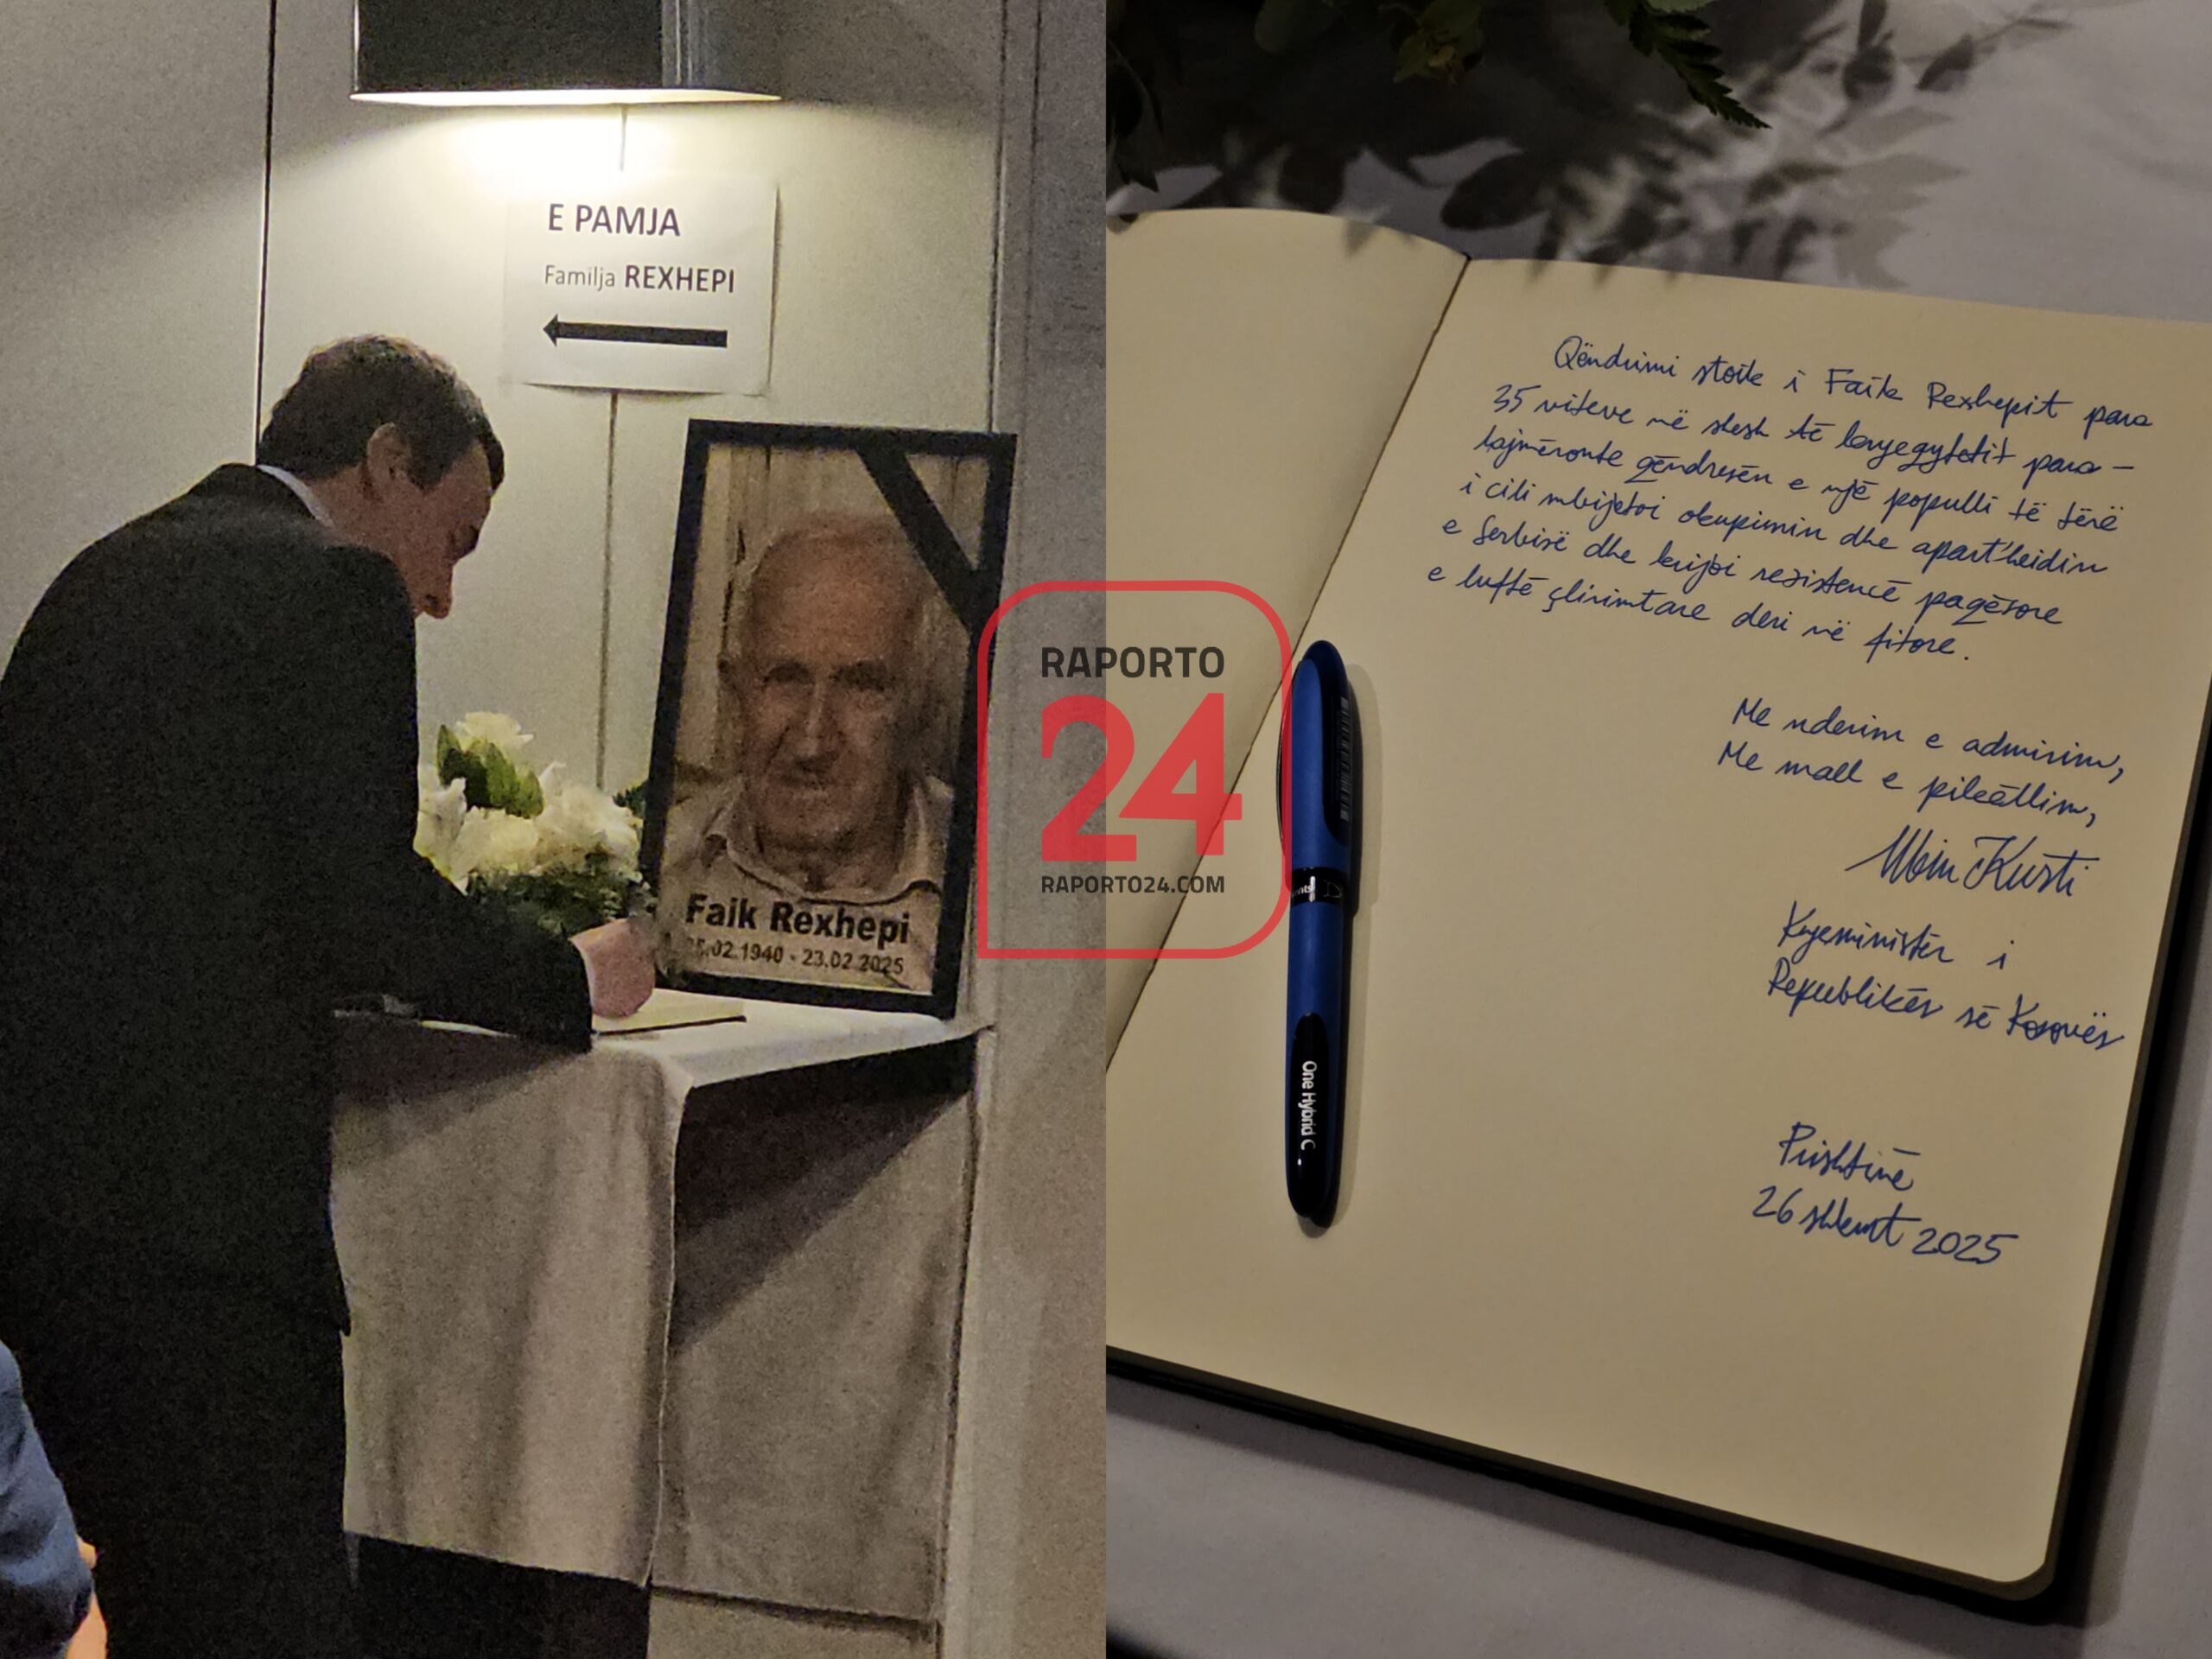 E PAMJA
Familja REXHEPI
Faik Rexhepi
.02.1940 - 23.02.2025
RAPORTO
24
RAPORTO24.COM
Qëndrimi stoik i Faik Rexhepit para
35 viteve në shesh të kryeqytetit para-
lajmëronte qëndresën e një populli të tërë
i cili mbijetoi okupimin dhe apartheidin
e Serbisë dhe krijoi rezistencë paqësore
e luftë çlirimtare deri në fitore.
Me nderim e admirim,
Me mall e pikëllim,
Albin Kurti
Kryeministër i
Republikës së Kosovës
Prishtinë
26 shkurt 2025
One Hybrid C